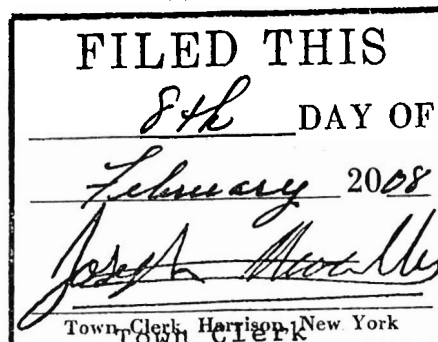 FILED THIS
8th DAY OF
February 2008
Joseph
Town Clerk, Harrison, New York
Town Clerk